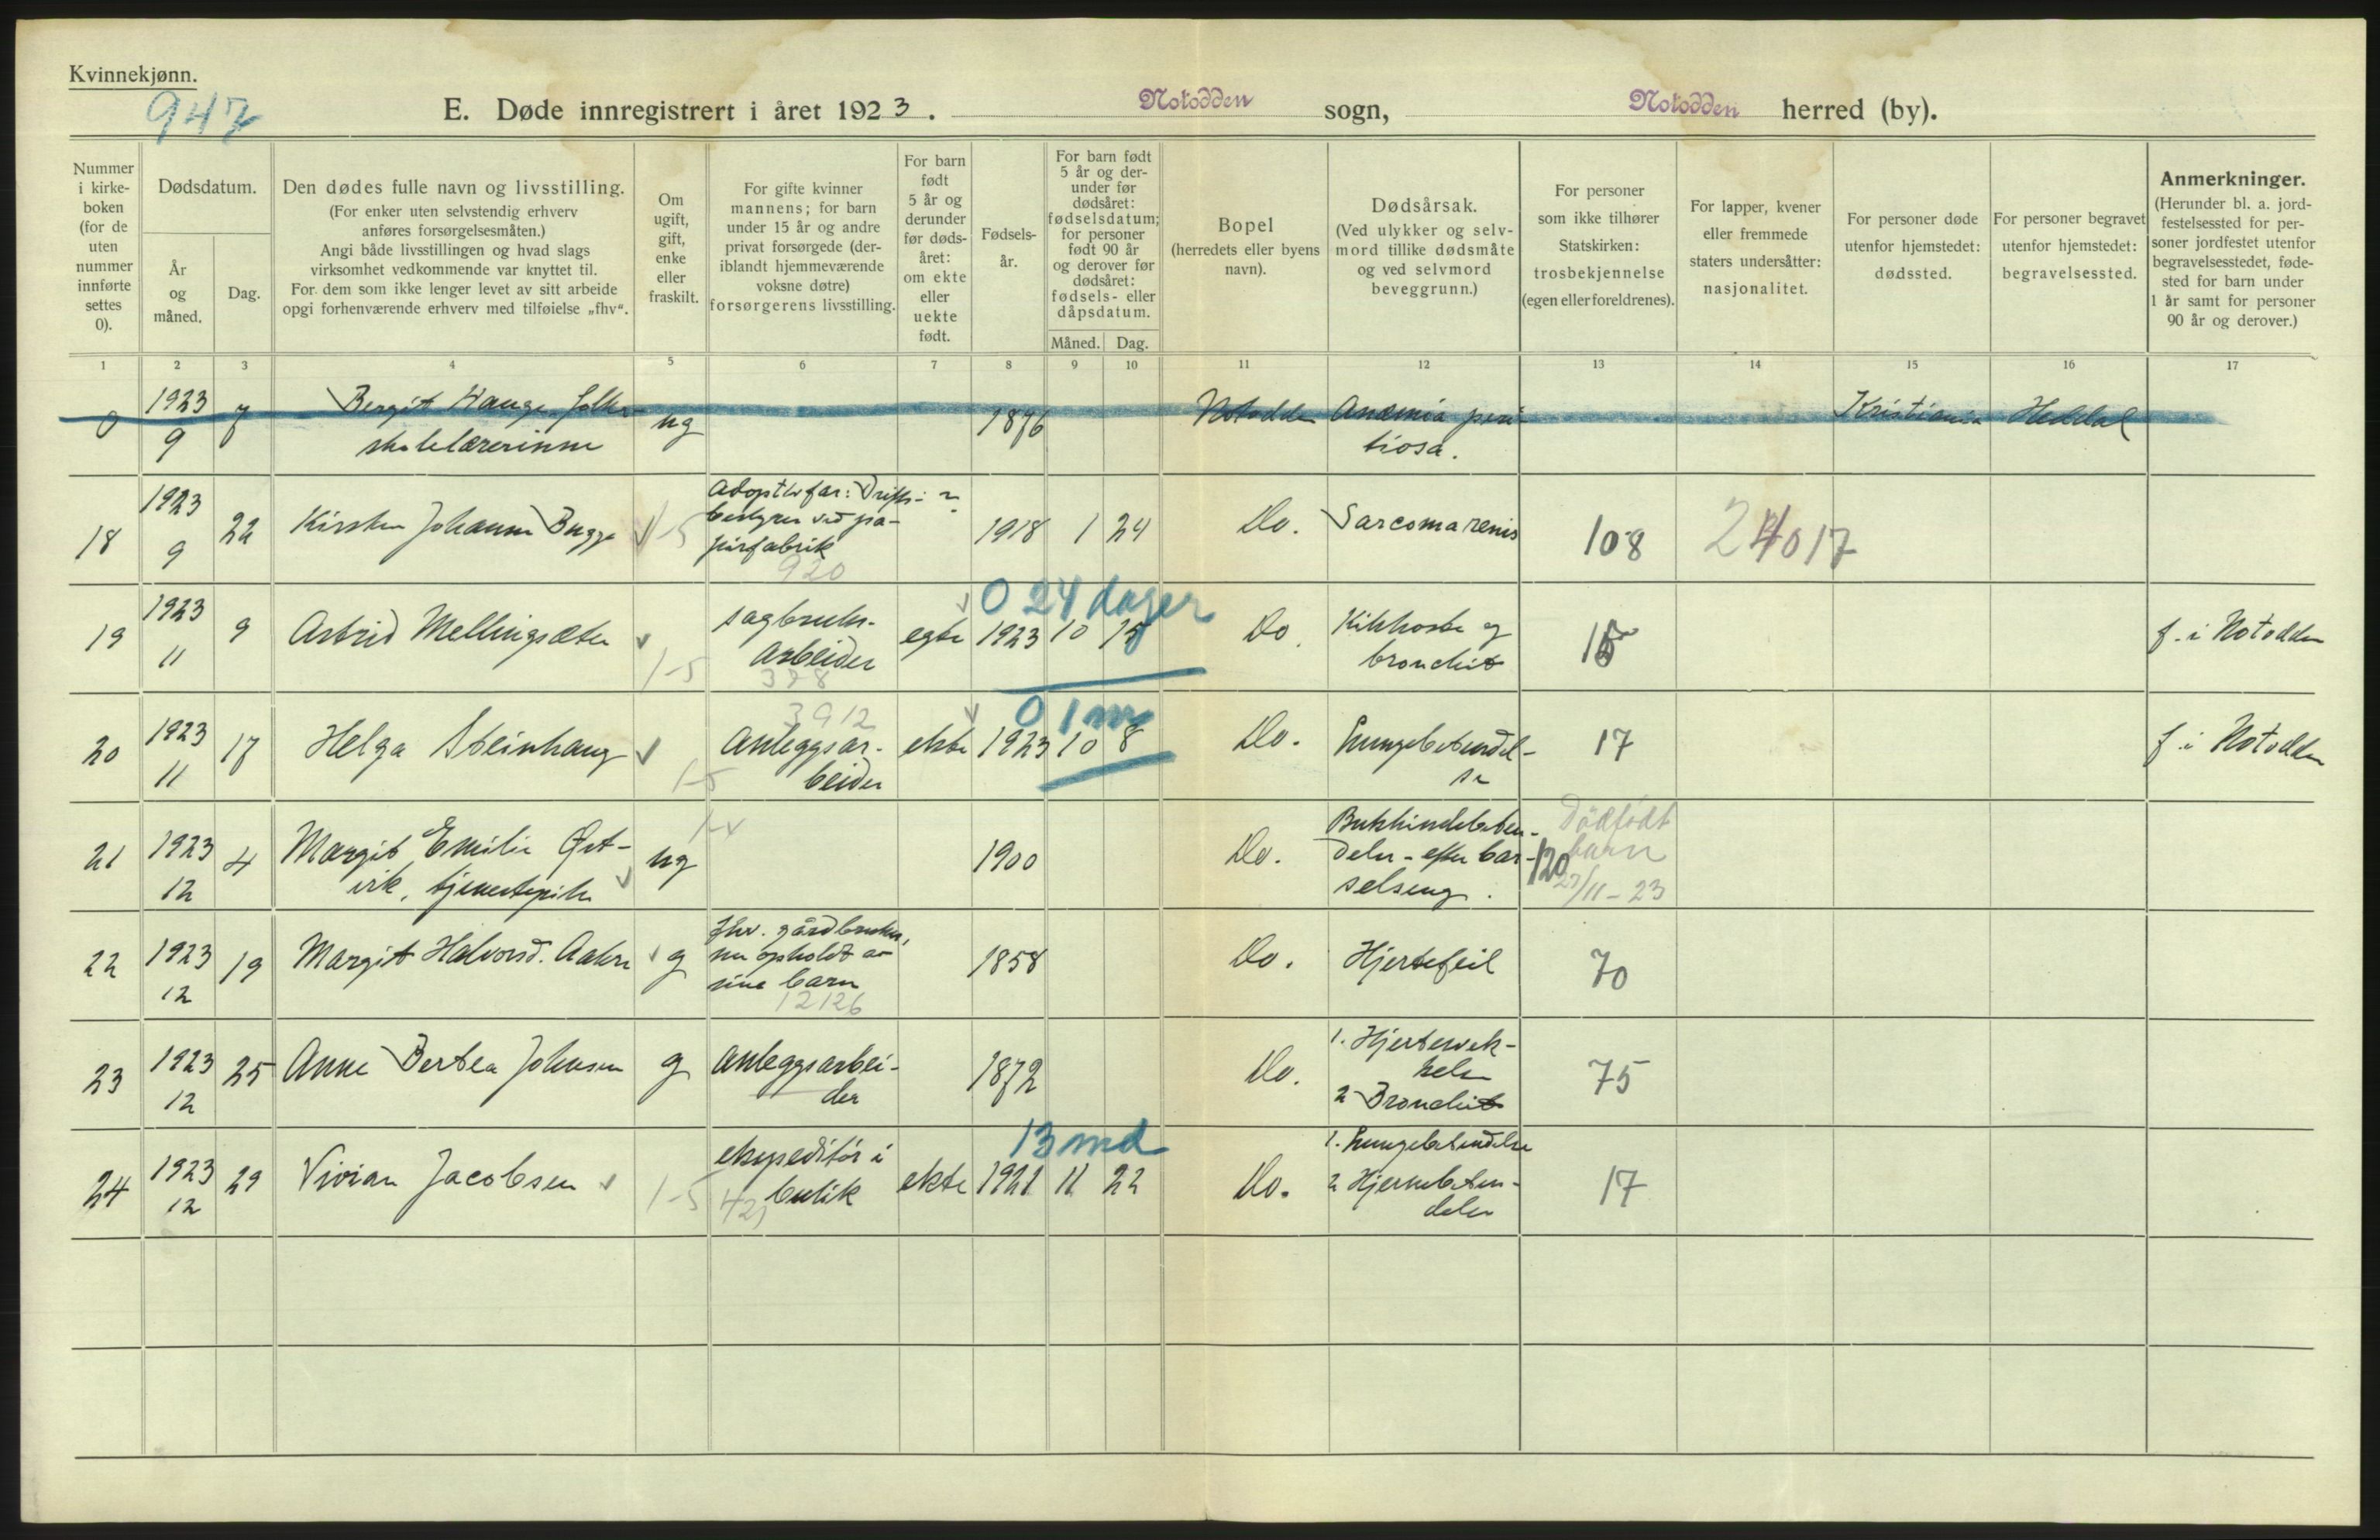 Kvinnekjønn.
947
E. Døde innregistrert i året 1923. Notodden sogn, Notodden herred (by).
Nummer i kirke-boken (for de uten nummer innførte settes 0).
Dødsdatum.
År og måned.
Dag.
Den dødes fulle navn og livsstilling.
(For enker uten selvstendig erhverv
anføres forsørgelsesmåten.)
Angi både livsstillingen og hvad slags
virksomhet vedkommende var knyttet til.
For dem som ikke lenger levet av sitt arbeide
opgi forhenværende erhverv med tilføielse „fhv“.
Om ugift, gift, enke eller fraskilt.
For gifte kvinner
mannens; for barn
under 15 år og andre
privat forsørgede (der-
iblandt hjemmeværende
voksne døtre)
forsørgerens livsstilling.
For barn født 5 år og derunder før døds-året: om ekte eller uekte født.
Fødsels-år.
For barn født 5 år og der-under før dødsåret: fødselsdatum; for personer født 90 år og derover før dødsåret: fødsels- eller dåpsdatum.
Måned. Dag.
Bopel
(herredets eller byens
navn).
Dødsårsak.
(Ved ulykker og selv-
mord tillike dødsmåte
og ved selvmord
beveggrunn.)
For personer
som ikke tilhører
Statskirken:
trosbekjennelse
(egen eller foreldrenes).
For lapper, kvener
eller fremmede
staters undersåtter:
nasjonalitet.
For personer døde
utenfor hjemstedet:
dødssted.
For personer begravet
utenfor hjemstedet:
begravelsessted.
Anmerkninger.
(Herunder bl. a. jord-
festelsessted for per-
soner jordfestet utenfor
begravelsesstedet, føde-
sted for barn under
1 år samt for personer
90 år og derover.)
1 2 3 4 5 6 7 8 9 10 11 12 13 14 15 16 17
0 1923 7 Bergit Hauge, folke- ug 1876 Notodden Anæmia perni- Kristiania Heddal
9 skolelærerinne tiosa.
1923 Adoptivfar: Drifts-
18 22 Kirsten Johanne Bugge 1-5 bestyrer ved pa- 1918 1 24 Do. Sarcoma renis 108 24017
9 pirfabrik
920
0 24 dager
1923 sagbruks- Kikhoste og
19 9 Astrid Mellingsæter egte 1923 10 15 Do. 15 f. i Notodden
11 1-5 arbeider bronchit
378
3912 0 1 m
20 1923 17 Helga Steinhaug Anleggsar- ekte 1923 10 8 Do. Lungebetendel- 17 f. i Notodden
11 1-5 beider se
Bukhindebeten- Dødfødt
21 1923 4 Margit Emilie Øst- ug 1900 Do. delse - efter bar- 120 barn
12 vik, tjenestepike selseng. 27/11-23
fhv. gårdbruker,
22 1923 19 Margit Halvorsd. Aakre g nu opholdt av 1858 Do. Hjertefeil 70
12 sine barn
12126
1. Hjertesvek-
23 1923 25 Anne Bertea Johnsen g Anleggsarbei- 1872 Do. kelse 75
12 der 2 Bronchit
13 md
ekspeditør i 1. Lungebetendelse
24 1923 29 Vivian Jacobsen 1-5 butik ekte 1921 11 22 Do. 2 Hjernebeten- 17
12 421 delse